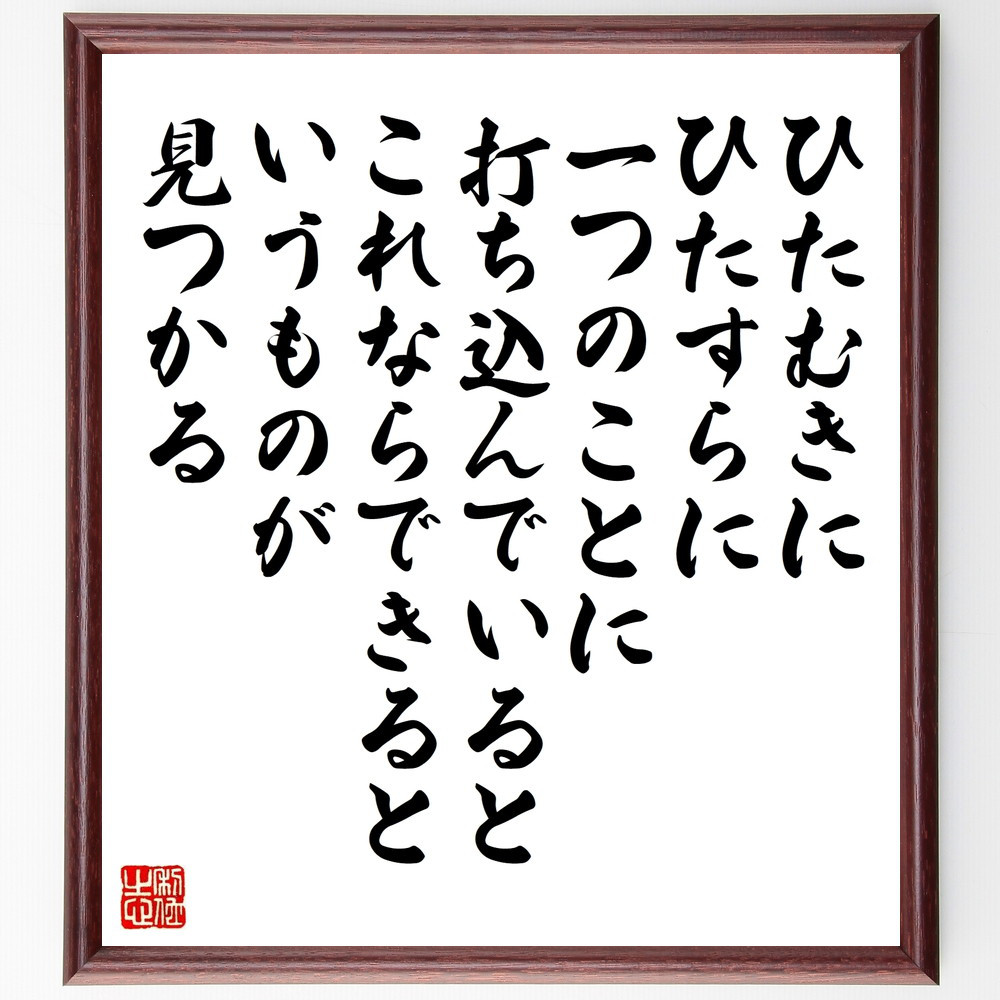 ひたむきに
ひたすらに
一つのことに
打ち込んでいると
これならできると
いうものが
見つかる